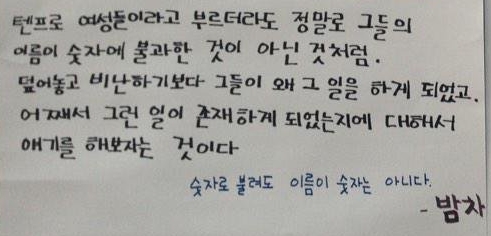 텐프로 여성들이라고 부르더라도 정말로 그들의
이름이 숫자에 불과한 것이 아닌 것처럼.
덮어놓고 비난하기보다 그들이 왜 그 일을 하게 되었고.
어째서 그런 일이 존재하게 되었는지에 대해서
얘기를 해보자는 것이다
숫자로 불려도 이름이 숫자는 아니다.
- 밤차